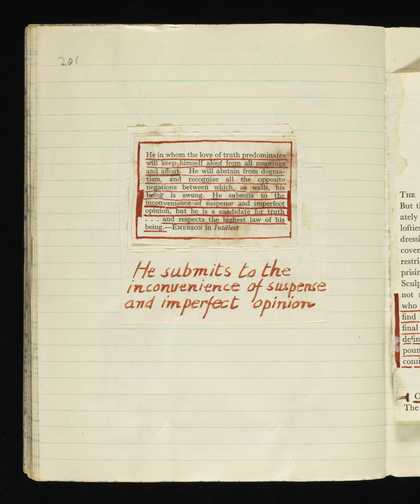 201
He in whom the love of truth predominates
will keep himself aloof from all moorings
and afloat. He will abstain from dogma-
tism, and recognise all the opposite
negations between which, as walls, his
being is swung. He submits to the
inconvenience of suspense and imperfect
opinion, but he is a candidate for truth
. . . and respects the highest law of his
being.—EMERSON in Intellect
He submits to the
inconvenience of suspense
and imperfect opinion
THE
But th
ately
loftie
dressi
cover
restri
prisin
Sculp
not
who
find
final
defin
poun
consi
The